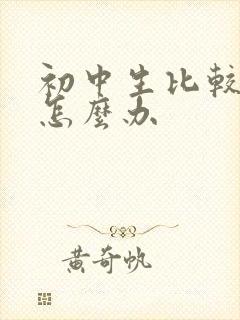 初中生比較
怎麼办
黄奇帆